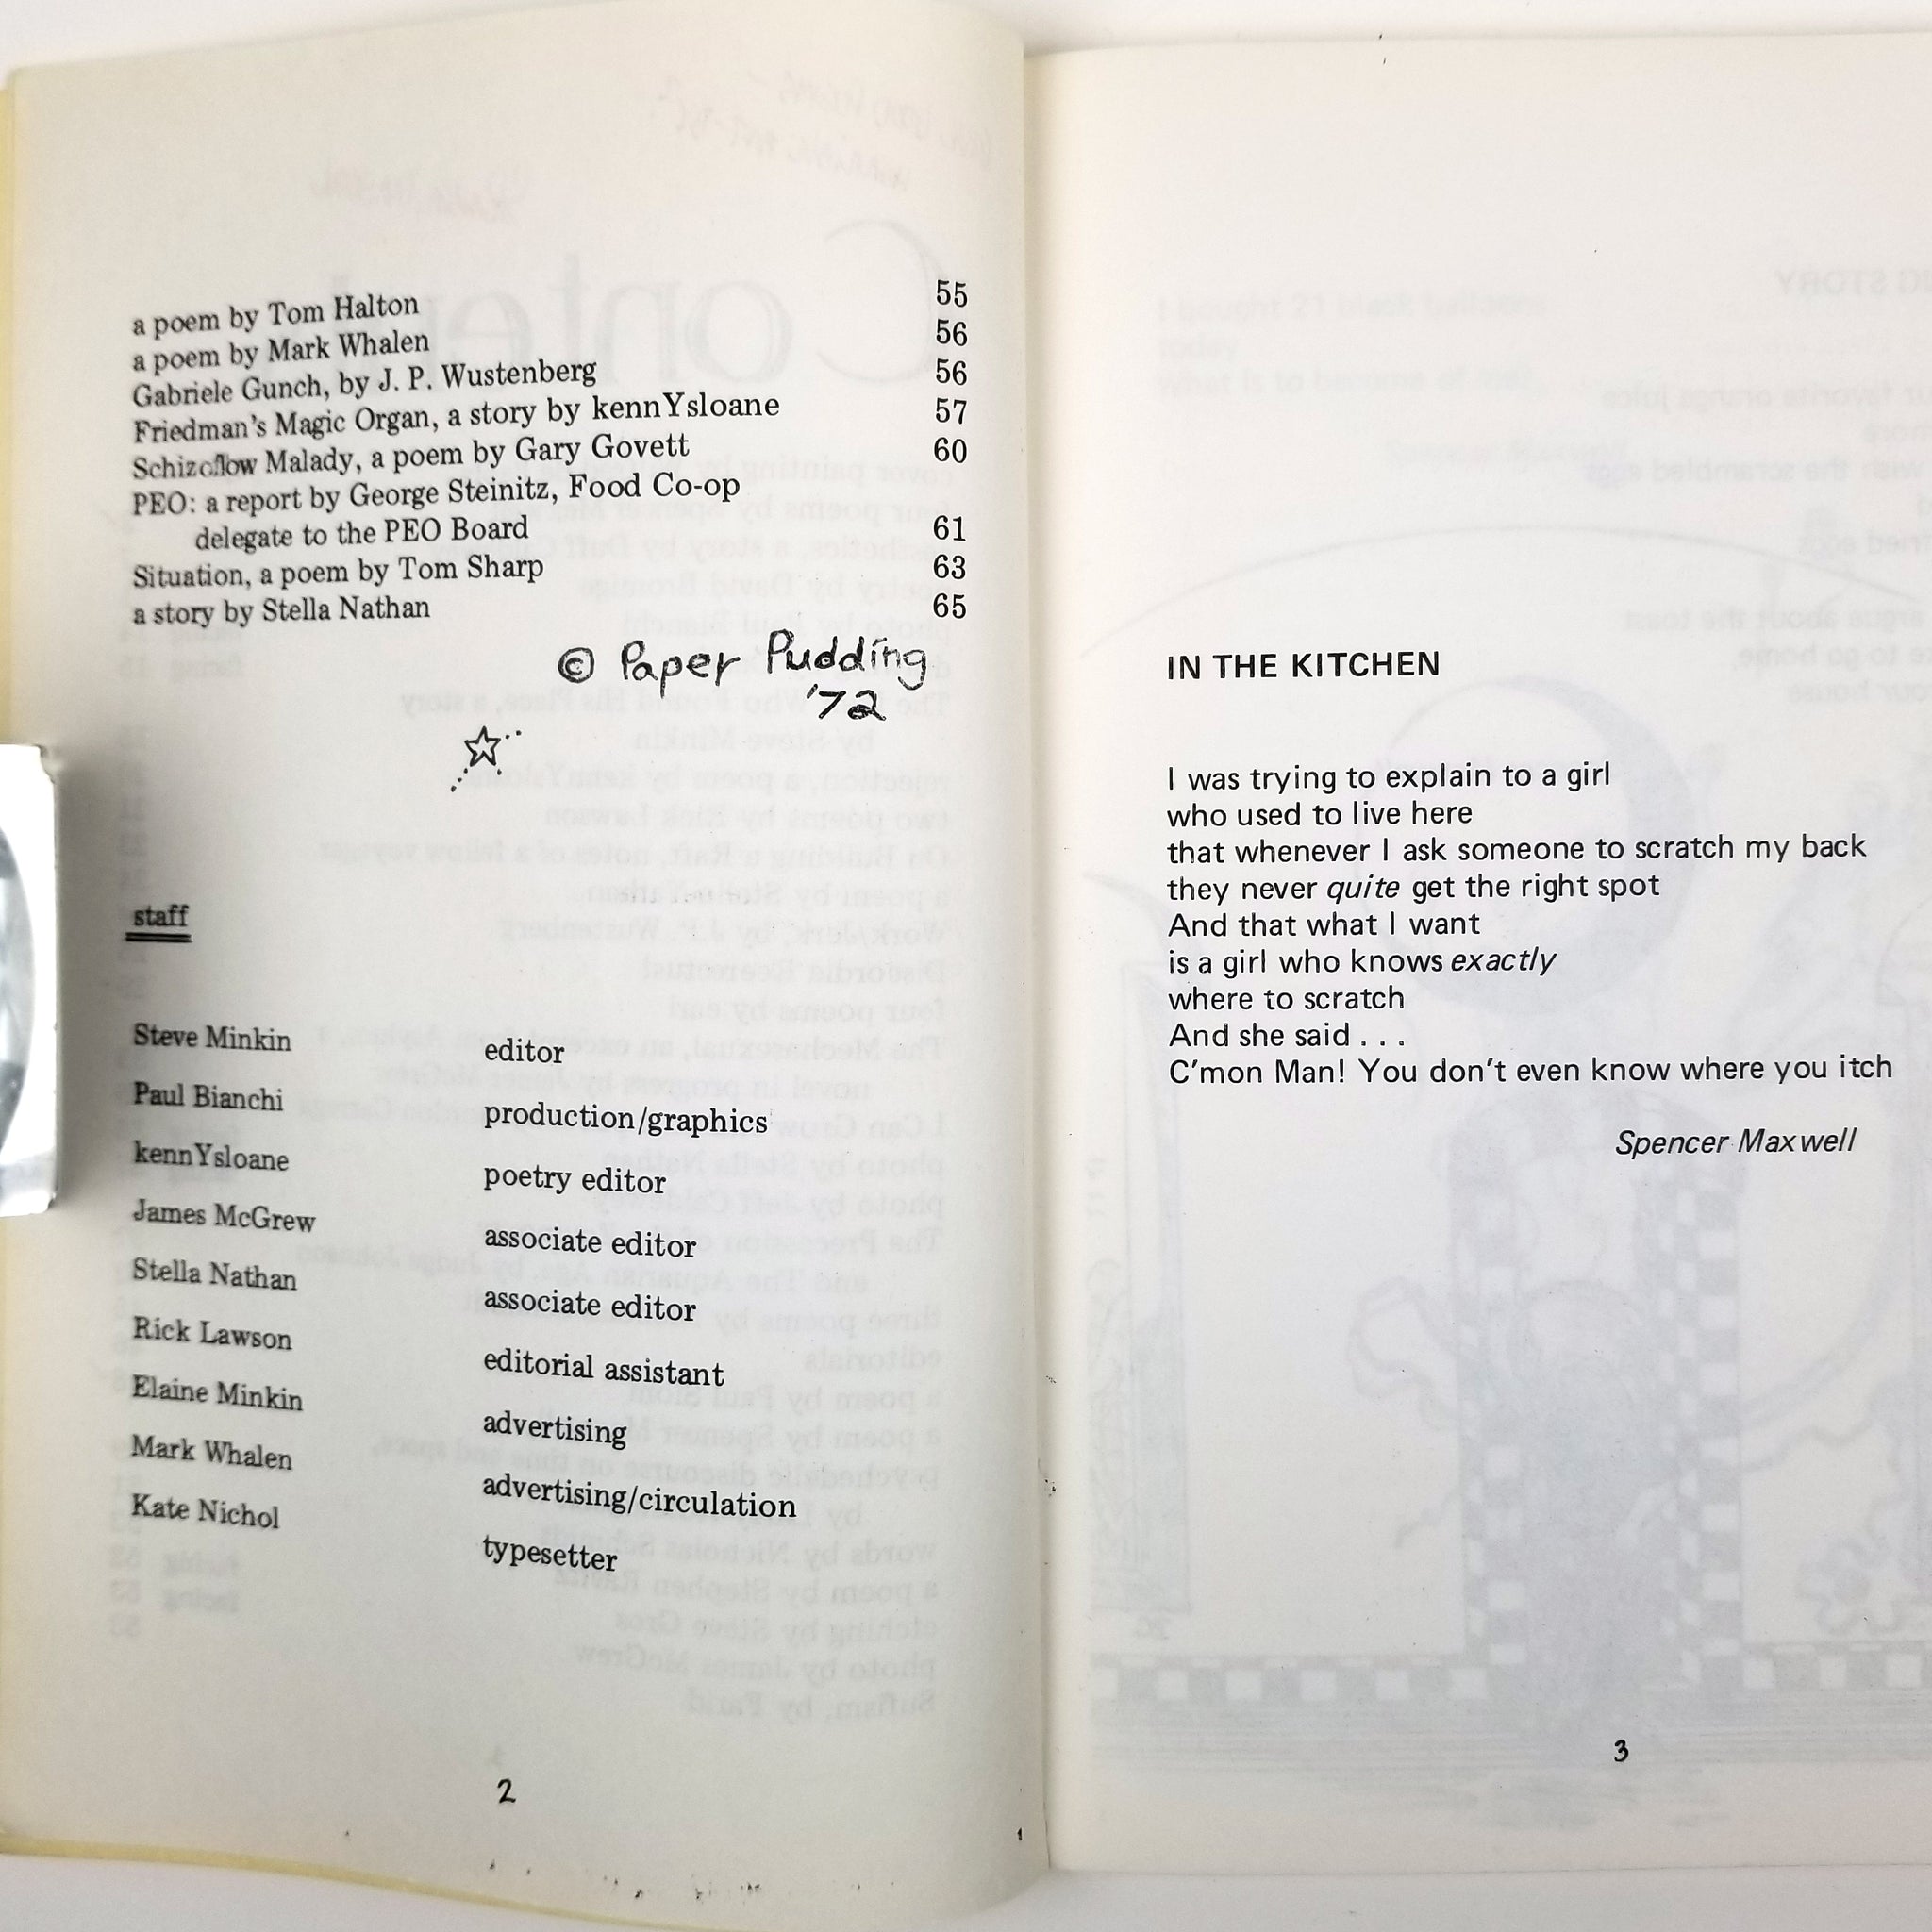 a poem by Tom Halton 55
a poem by Mark Whalen 56
Gabriele Gunch, by J. P. Wustenberg 56
Friedman's Magic Organ, a story by kennYsloane 57
Schizoflow Malady, a poem by Gary Govett 60
PEO: a report by George Steinitz, Food Co-op
delegate to the PEO Board 61
Situation, a poem by Tom Sharp 63
a story by Stella Nathan 65
© Paper Pudding
'72
staff
Steve Minkin editor
Paul Bianchi production/graphics
kennYsloane poetry editor
James McGrew associate editor
Stella Nathan associate editor
Rick Lawson editorial assistant
Elaine Minkin advertising
Mark Whalen advertising/circulation
Kate Nichol typesetter
2
IN THE KITCHEN
I was trying to explain to a girl
who used to live here
that whenever I ask someone to scratch my back
they never quite get the right spot
And that what I want
is a girl who knows exactly
where to scratch
And she said . . .
C'mon Man! You don't even know where you itch
Spencer Maxwell
3